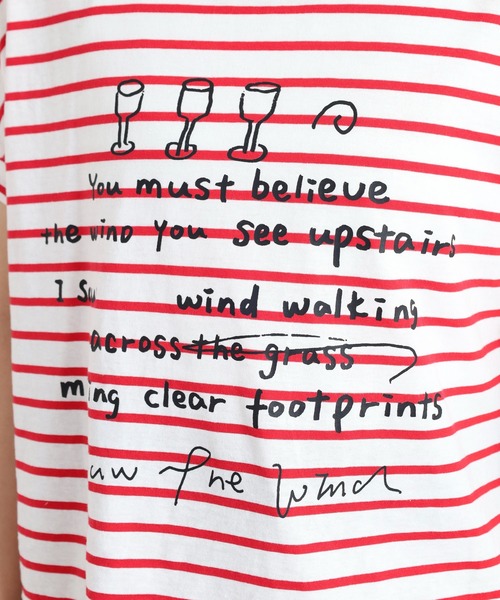 You must believe
the wind you see upstairs
I wind walking
across the grass
clear footprints
the wind